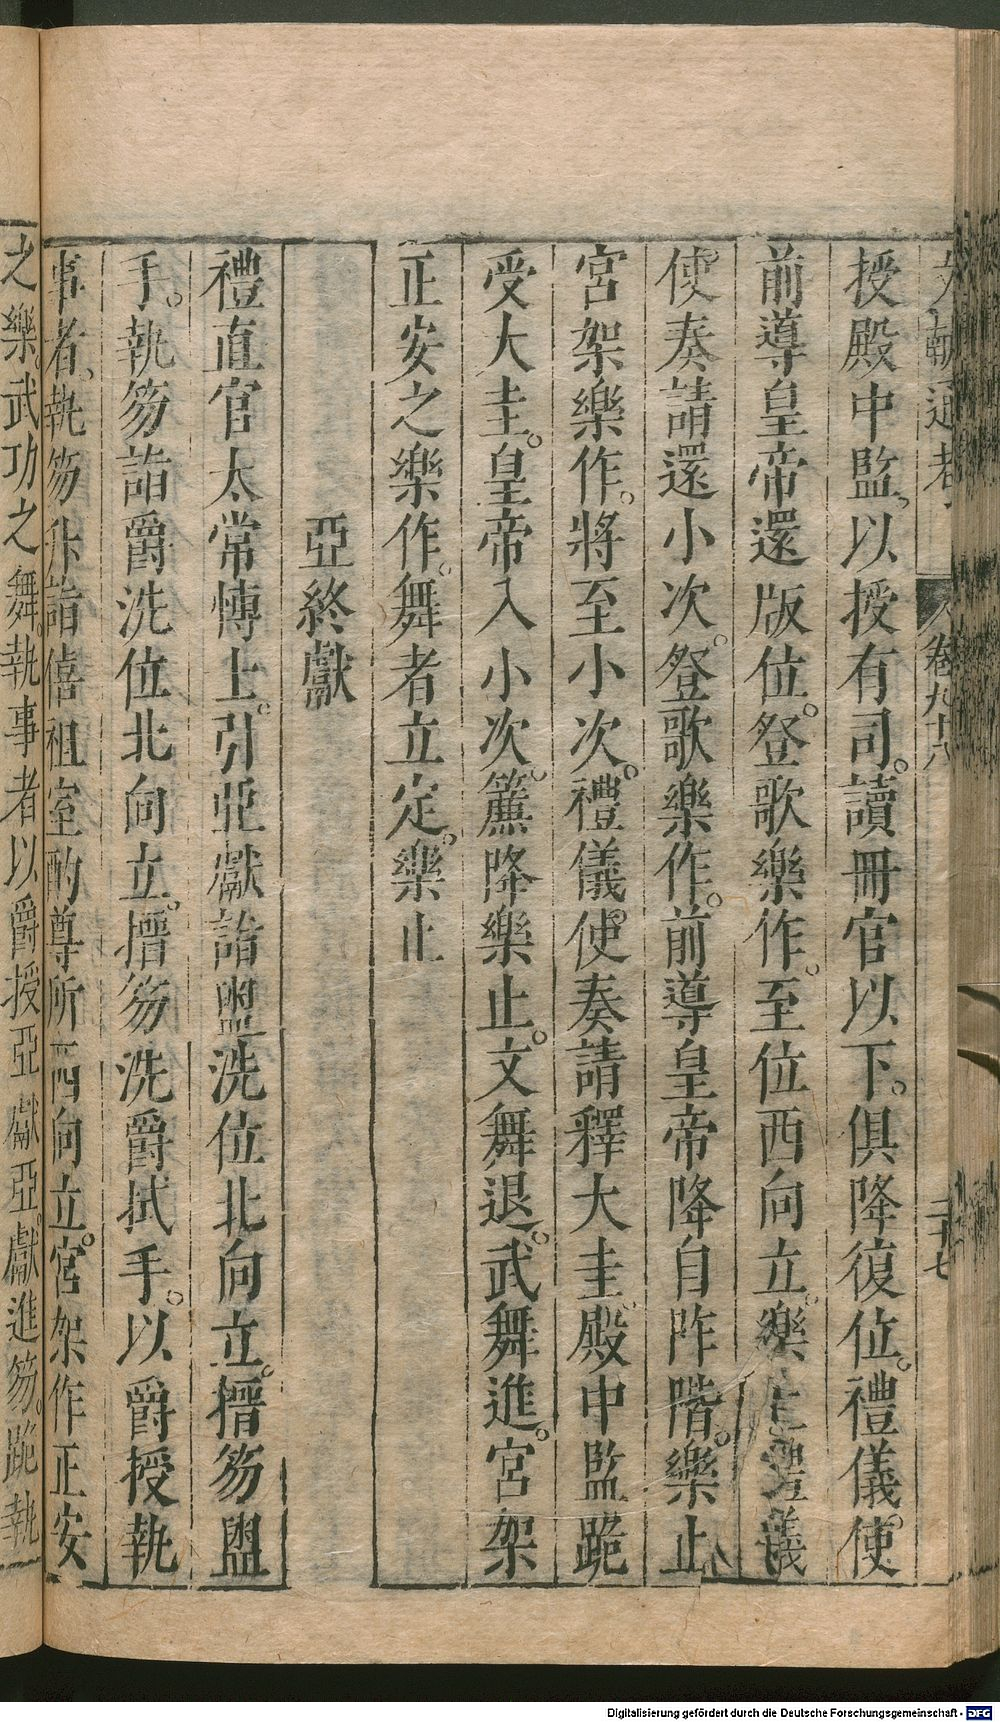 文獻通考 卷九十八 二十七
授殿中監以授有司。讀冊官以下。俱降復位。禮儀使
前導皇帝還版位。登歌樂作。至位西向立。樂止禮儀
使奏請還小次。登歌樂作。前導皇帝降自阼階。樂止
宮架樂作。將至小次。禮儀使奏請釋大圭。殿中監跪
受大圭。皇帝入小次。簾降樂止。文舞退。武舞進。宮架
正安之樂作。舞者立定。樂止
亞終獻
禮直官太常博士。引亞獻詣盥洗位北向立。搢笏盥
手。執笏詣爵洗位北向立。搢笏洗爵拭手。以爵授執
事者。執笏升詣僖祖室酌尊所西向立。宮架作正安
之樂。武功之舞。執事者以爵授亞獻。亞獻進笏。跪執
Digitalisierung gefördert durch die Deutsche Forschungsgemeinschaft - DFG